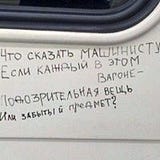 Что сказать машинисту
Если каждый в этом
вагоне–
Подозрительная вещь
Или забытый предмет?